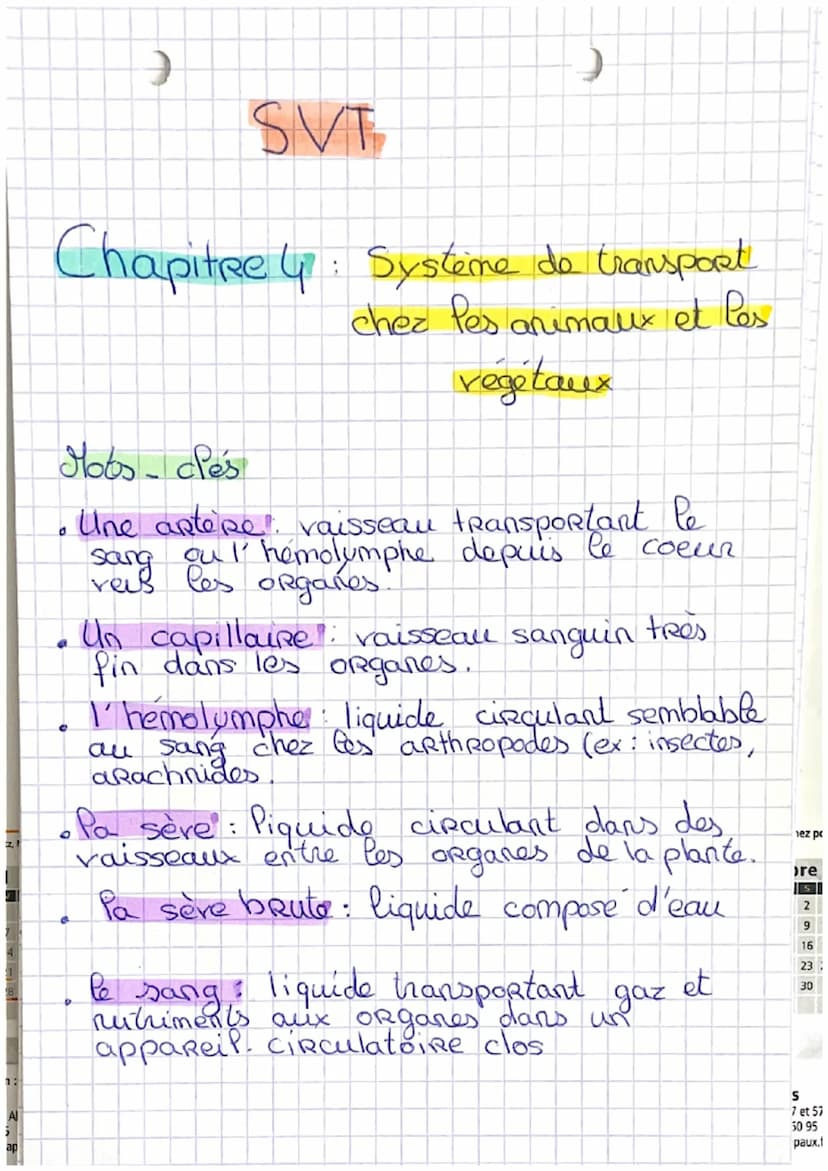 SVT
Chapitre 4 : Système de transport
chez les animaux et les
végétaux
Mots-clés
• Une artère : vaisseau transportant le
sang ou l'hémolymphe depuis le coeur
vers les organes.
• Un capillaire : vaisseau sanguin très
fin dans les organes.
• l'hémolymphe : liquide circulant semblable
au sang chez les arthropodes (ex : insectes,
arachnides.
• la sève : liquide circulant dans des
vaisseaux entre les organes de la plante.
• la sève brute : liquide composé d'eau
• le sang : liquide transportant gaz et
nutriments aux organes dans un
appareil circulatoire clos
2
9
16
23
30
7 et 57
50 95